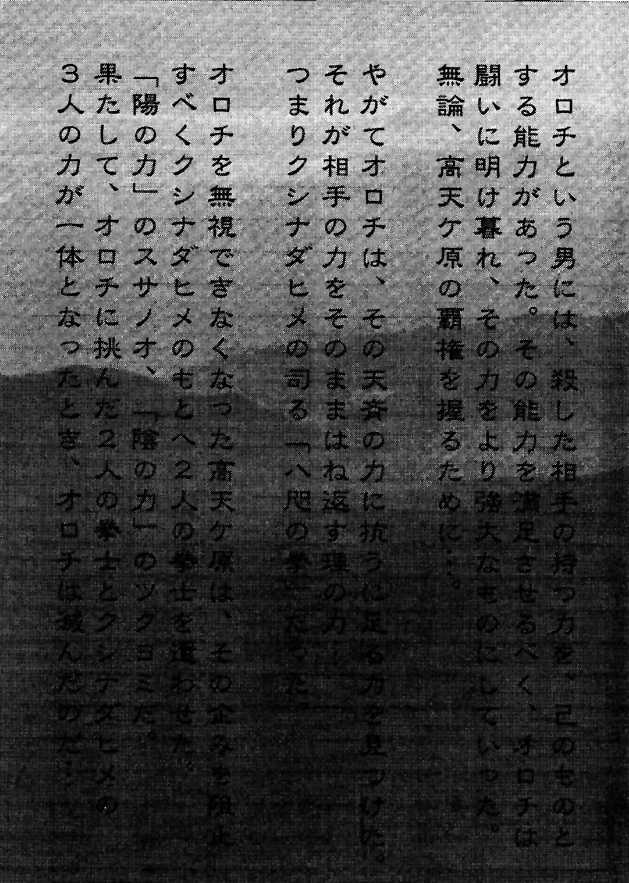 オロチという男には、殺した相手の持つ力を、己のものと
する能力があった。その能力を満足させるべく、オロチは
闘いに明け暮れ、その力をより強大なものにしていった。
無論、高天ケ原の覇権を握るために…。
やがてオロチは、その天賚の力に抗うに足る力を見つけた。
それが相手の力をそのままはね返す理の力…
つまりクシナダヒメの司る「八咫の拳」だった。
オロチを無視できなくなった高天ケ原は、その企みを阻止
すべくクシナダヒメのもとへ2人の拳士を遣わせた。
「陽の力」のスサノオ、「陰の力」のツクヨミだ。
果たして、オロチに挑んだ2人の拳士とクシナダヒメの
3人の力が一体となったとき、オロチは滅んだのだ…